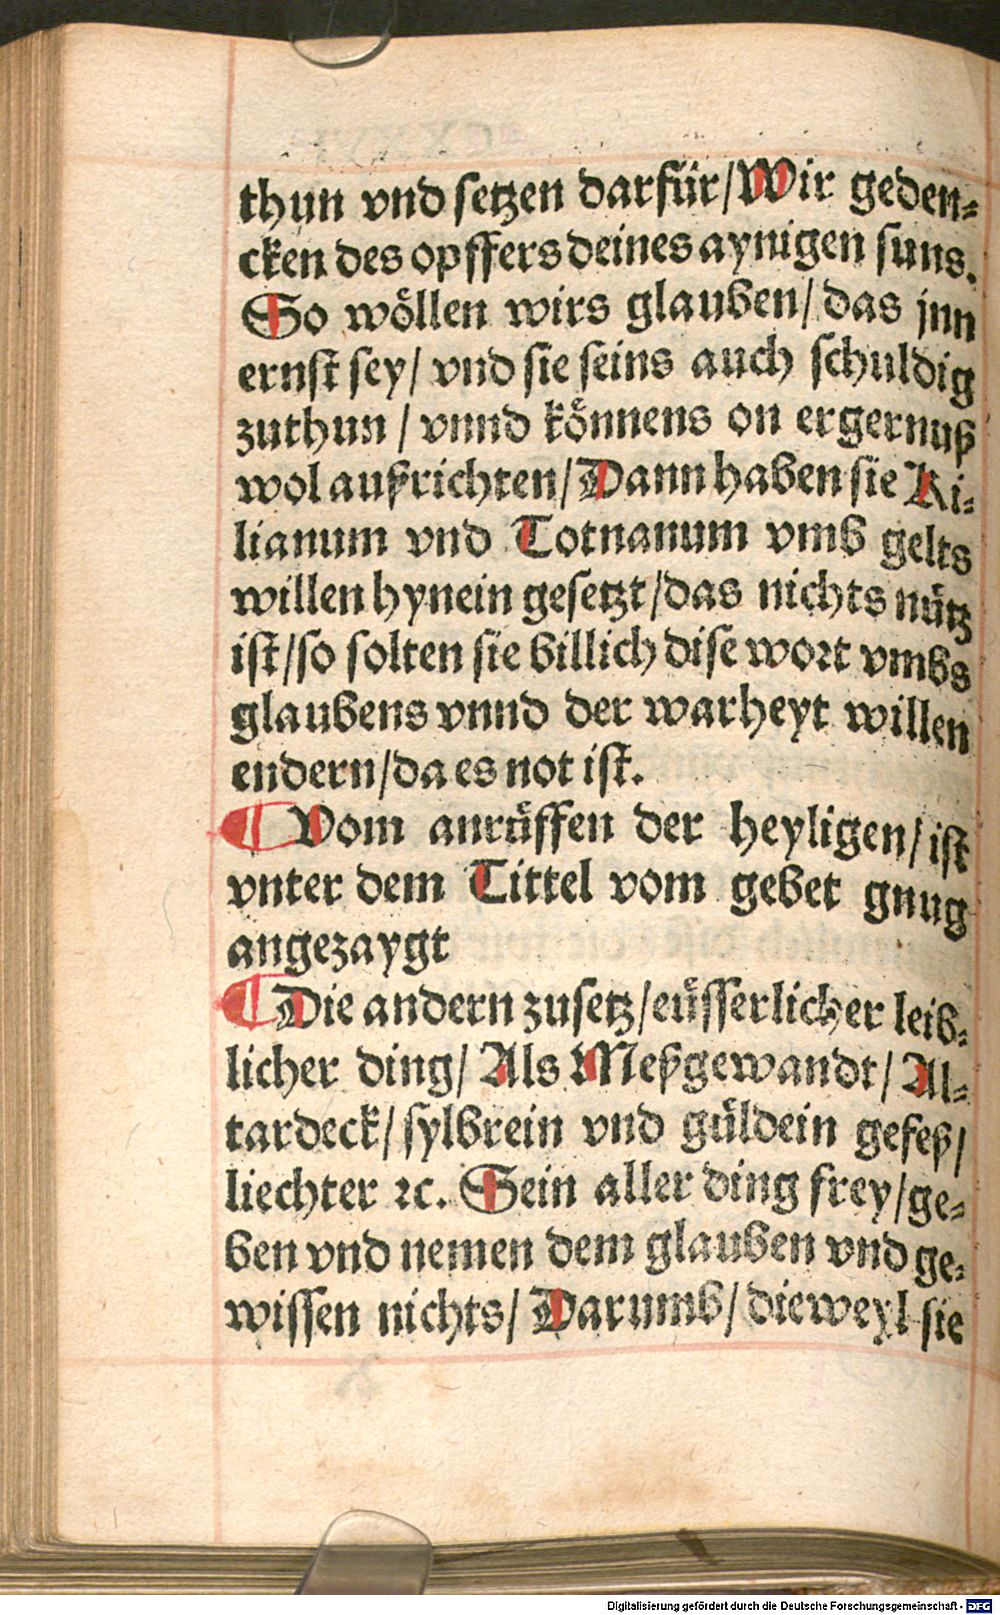 thun vnd setzen darfür/Wir geden⸗
cken des opffers deines aynigen suns.
So wöllen wirs glauben/ das jnn
ernst sey/ vnd sie seins auch schuldig
zuthun / vnnd können s on ergernuß
wol außrichten/Dann haben sie Ki⸗
lianum vnd Totnanum vmb gelts
willen hynein gesetzt/das nichts nütz
ist/so solten sie billich dise wort vmbs
glaubens vnnd der warheyt willen
endern/da es not ist.
¶ Vom anrüffen der heyligen/ ist
vnter dem Tittel vom gebet gnug
angezaygt
¶ Die andern zusetz/eüsserlicher leib⸗
licher ding/ Als Meßgewandt/ Al⸗
tardeck/ sylbrein vnd güldein gefeß/
liechter ꝛc. Sein aller ding frey/ge⸗
ben vnd nemen dem glauben vnd ge⸗
wissen nichts/ Darumb/ dieweyl sie
Digitalisierung gefördert durch die Deutsche Forschungsgemeinschaft - DFG